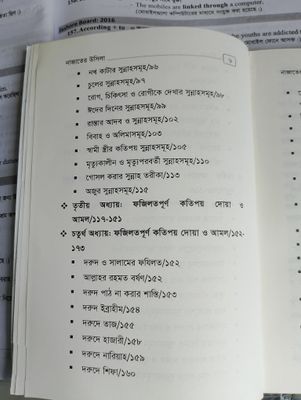 The mobiles are linked through a computer.
Dinajpur Board: 2016
157. According + to
youths are addicted to
নাজাতের উসিলা
৬
▪ নখ কাটার সুন্নাহসমূহ/৯৬
▪ চুলের সুন্নাহসমূহ/৯৭
▪ রোগ, চিকিৎসা ও রোগীকে দেখার সুন্নাহসমূহ/৯৮
▪ ঈদের দিনের সুন্নাহসমূহ/৯৯
▪ রাস্তার আদব ও সুন্নাহসমূহ/১০২
▪ বিবাহ ও অলিমাসমূহ/১০৩
▪ স্বামী স্ত্রীর কতিপয় সুন্নাহসমূহ/১০৫
▪ মৃত্যুকালীন ও মৃত্যুপরবর্তী সুন্নাহসমূহ/১১০
▪ গোসল করার সুন্নাহ তরীকা/১১৩
▪ অজুর সুন্নাহসমূহ/১১৫
❖ তৃতীয় অধ্যায়: ফজিলতপূর্ণ কতিপয় দোয়া ও
আমল/১১৭-১৫১
❖ চতুর্থ অধ্যায়: ফজিলতপূর্ণ কতিপয় দোয়া ও আমল/১৫২-
১৭৩
▪ দরুদ ও সালামের ফযিলত/১৫২
▪ আল্লাহর রহমত বর্ষণ/১৫২
▪ দরুদ পাঠ না করার শাস্তি/১৫৩
▪ দরুদ ইব্রাহীম/১৫৪
▪ দরুদে তাজ/১৫৫
▪ দরুদে হাজারী/১৫৮
▪ দরুদে নারিয়াহ/১৫৯
▪ দরুদে শিফা/১৬০